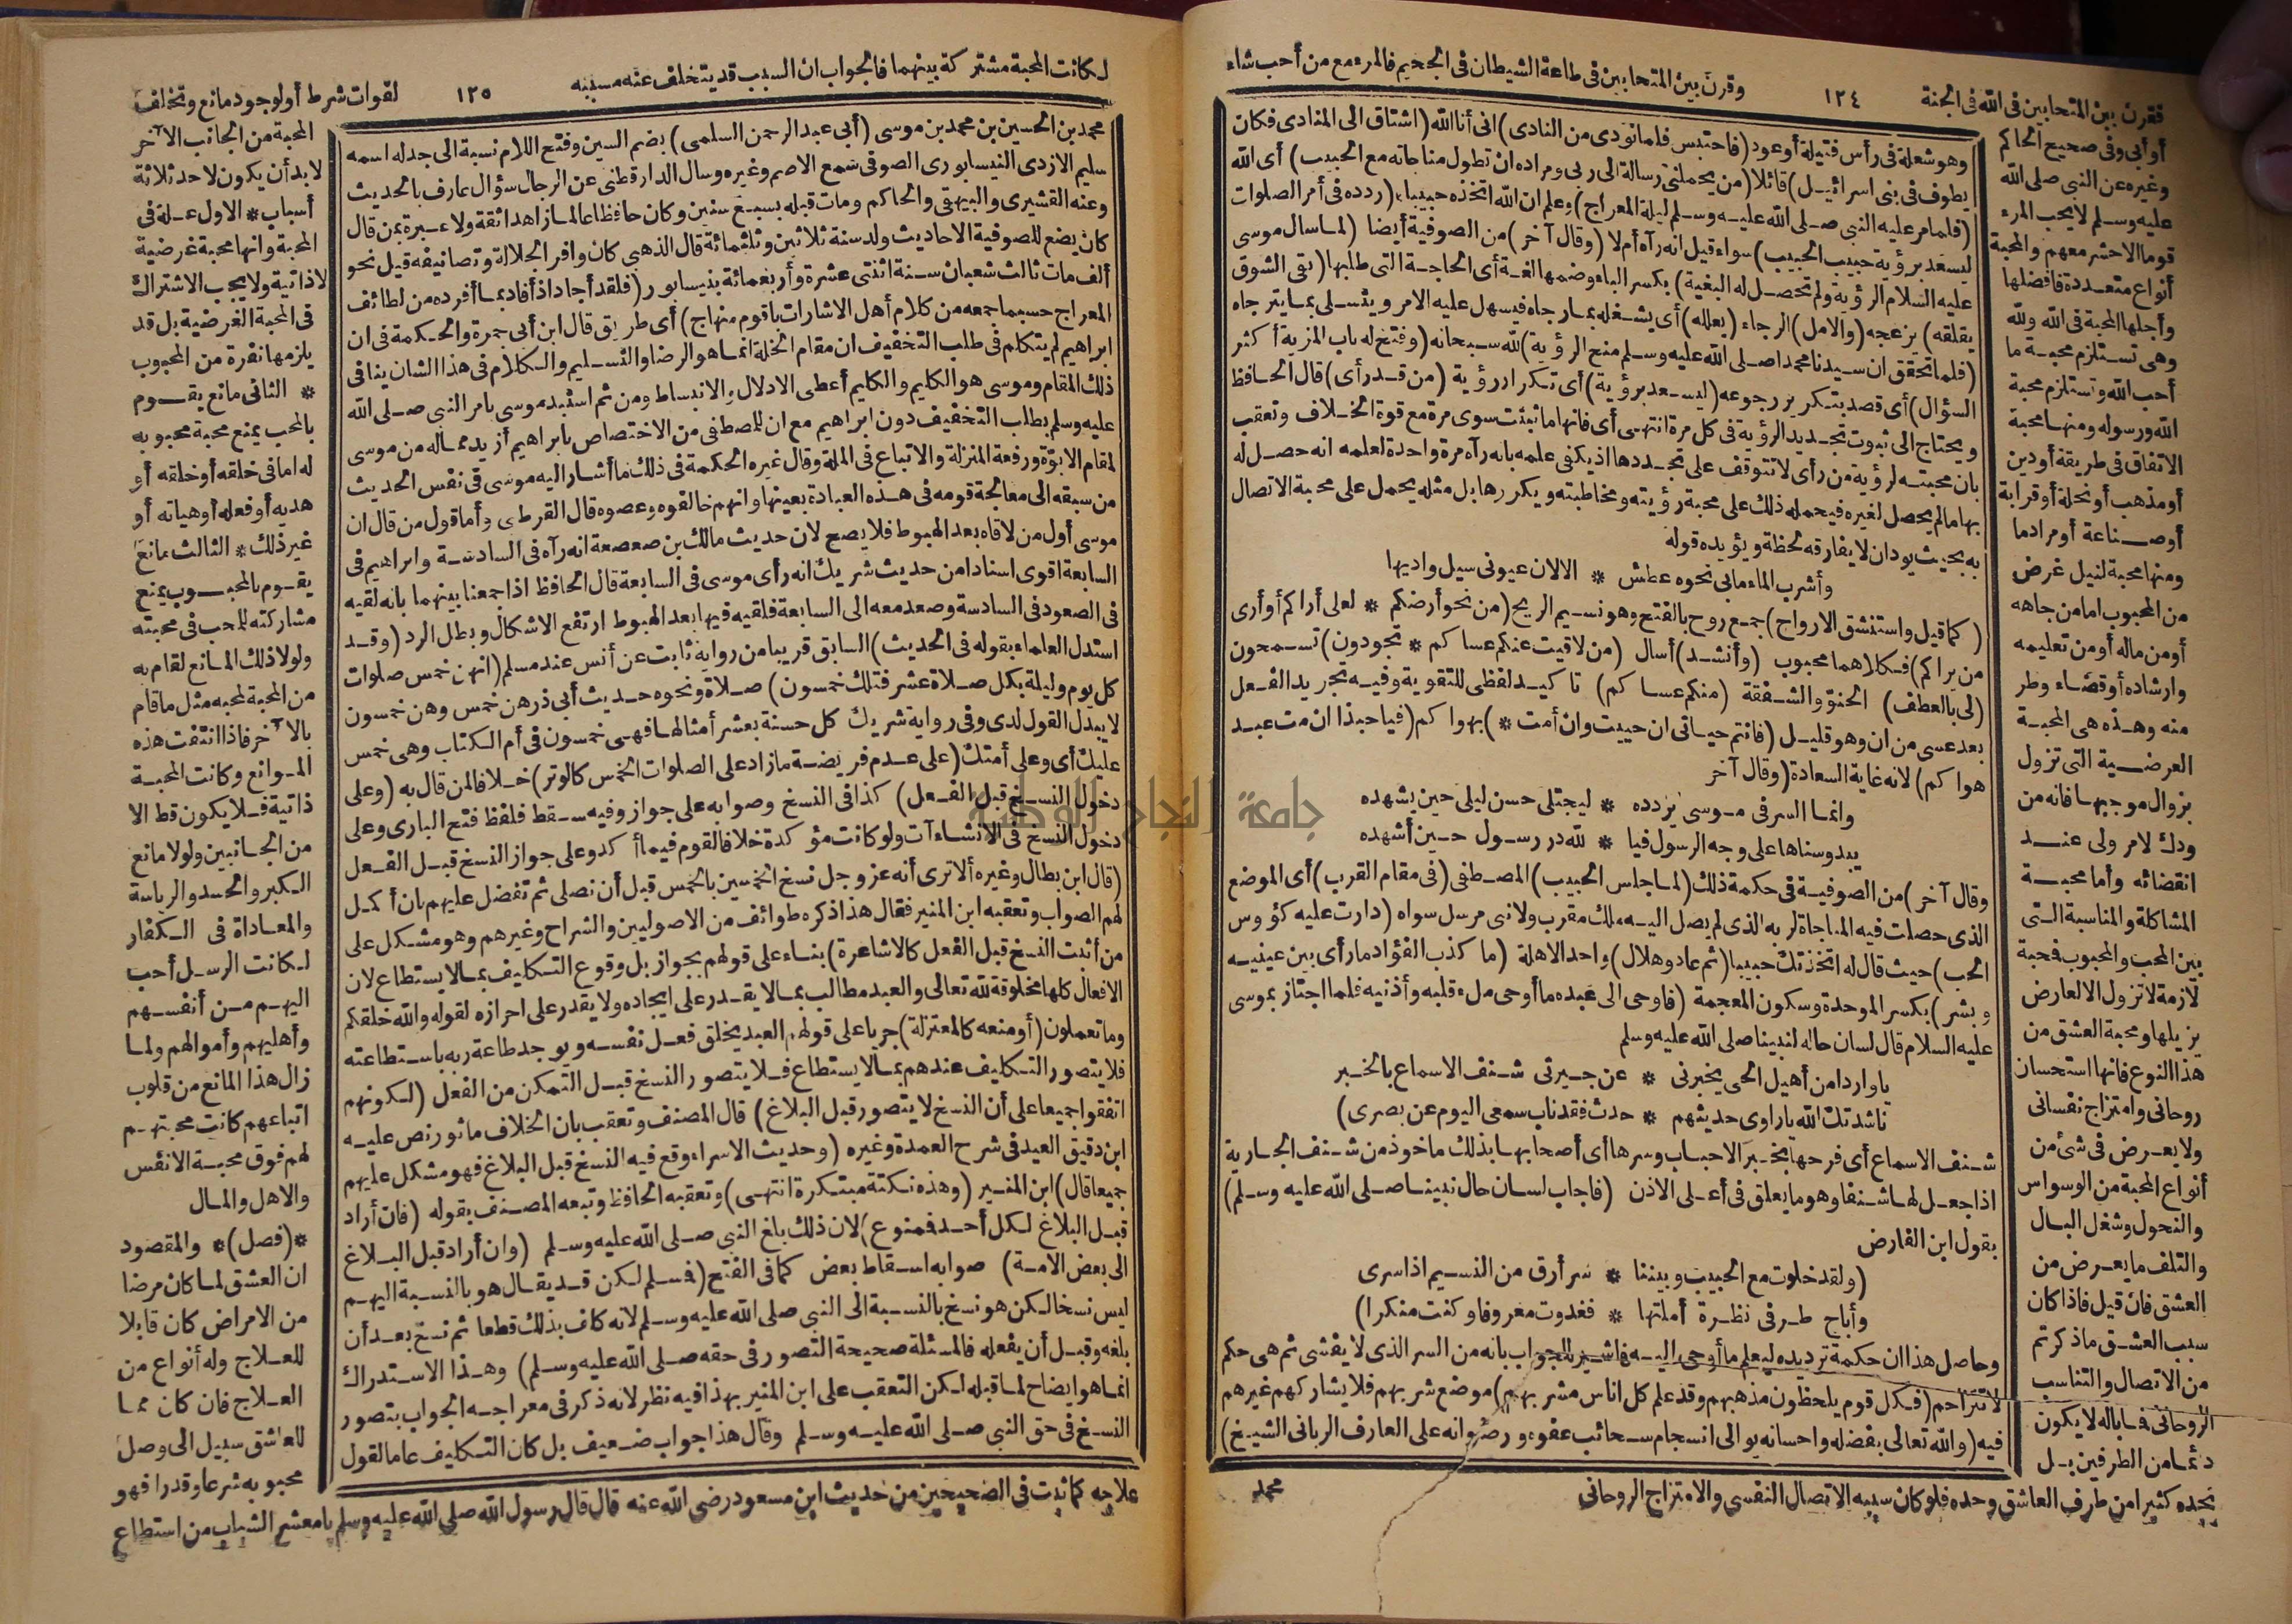 فقرن بين المتحابين فى الله فى الجنة ١٢٤ وقرن بين المتحابين فى طاعة الشيطان فى الجحيم فالمرء مع من أحب شاء
أو أبى وفى صحيح الحاكم
وغيره عن النبى صلى الله
عليه وسلم لا يحب المرء
قوما الا حشر معهم والمحبة
أنواع متعددة فافضلها
وأجلها المحبة فى الله ولله
وهى تستلزم محبة ما
أحب الله وتستلزم محبة
الله ورسوله ومنها محبة
الاتفاق فى طريقة أو دين
أو مذهب أو نحلة أو قرابة
أو صناعة أو مراد ما
ومنها محبة لنيل غرض
من المحبوب اما من جاهه
أو من ماله أو من تعليمه
وارشاده أو قضاء وطر
منه وهذه هى المحبة
العرضية التى تزول
بزوال موجبها فانه من
ودك لامر ولى عند
انقضائه وأما محبة
المشاكلة والمناسبة التى
بين المحب والمحبوب فمحبة
لازمة لا تزول الا لعارض
يزيلها ومحبة العشق من
هذا النوع فانها استحسان
روحانى وامتزاج نفسانى
ولا يعرض فى شئ من
أنواع المحبة من الوسواس
والنحول وشغل البال
والتلف ما يعرض من
العشق فان قيل فاذا كان
سبب العشق ما ذكرتم
من الاتصال والتناسب
الروحانى فما باله لا يكون
دائما من الطرفين بل
نجده كثيرا من طرف العاشق وحده فلو كان سببه الاتصال النفسى والامتزاج الروحانى
وهو شعلة فى رأس فتيلة أو عود (فاحتبس فلما نودى من النادى) انى أنا الله (اشتاق الى المنادى فكان
يطوف فى بنى اسرائيل) قائلا (من يحملنى رسالة الى ربى ومراده ان تطول مناجاته مع الحبيب) أى الله
(فلما مر عليه النبى صلى الله عليه وسلم ليلة المعراج) وعلم ان الله اتخذه حبيبا (ردده فى أمر الصلوات
ليسعد برؤية حبيب الحبيب) سواء قيل انه رآه أم لا (وقال آخر) من الصوفية أيضا (لما سال موسى
عليه السلام الرؤية ولم تحصل له البغية) بكسر الباء وضمها لغة أى الحاجة التى طلبها (بقى الشوق
يقلقه) يزعجه (والامل) الرجاء (يعلله) أى يشغله بما رجاه فيسهل عليه الامر ويتسلى بما يترجاه
(فلما تحقق ان سيدنا محمدا صلى الله عليه وسلم منح الرؤية) لله سبحانه (وفتح له باب المزية أكثر
السؤال) أى قصد بتكرير رجوعه (ليسعد برؤية) أى تكرار رؤية (من قد رأى) قال الحافظ
ويحتاج الى ثبوت تجديد الرؤية فى كل مرة انتهى أى فانها ما ثبتت سوى مرة مع قوة الخلاف وتعقب
بان محبته لرؤية من رأى لا تتوقف على تجددها اذ يكفى علمه بانه رآه مرة واحدة لعلمه انه حصل له
بها ما لم يحصل لغيره فيحمله ذلك على محبة رؤيته ومخاطبته ويكررها بل مثله يحمل على محبة الاتصال
به بحيث يود ان لا يفارقه لحظة ويؤيده قوله
وأشرب الماء مابى نحوه عطش * الا لان عيونى سيل واديها
(كما قيل واستنشق الارواح) جمع روح بالفتح وهو نسيم الريح (من نحو أرضكم * لعلى أراكم أو أرى
من يراكم) فكلاهما محبوب (وأنشد) أسال (من لاقيت عنكم عساكم * تجودون) تسمحون
(لى بالعطف) الحنو والشفقة (منكم عساكم) تاكيد لفظى للتقوية وفيه تجريد الفعل
بعد عسى من ان وهو قليل (فانتم حياتى ان حييت وان أمت *) بهواكم (فيا حبذا ان مت عبد
هواكم) لانه غاية السعادة (وقال آخر
وانما السر فى موسى يردده * ليجتلى حسن ليلى حين يشهده
يبدو سناها على وجه الرسول فيا * لله در رسول حين أشهده
وقال آخر) من الصوفية فى حكمة ذلك (لما جلس الحبيب) المصطفى (فى مقام القرب) أى الموضع
الذى حصلت فيه المناجاة لربه الذى لم يصل اليه ملك مقرب ولا نبى مرسل سواه (دارت عليه كؤس
الحب) حيث قال له اتخذتك حبيبا (ثم عاد وهلال) واحد الاهلة (ما كذب الفؤاد ما رأى بين عينيه
وبشر) بكسر الموحدة وسكون المعجمة (فاوحى الى عبده ما أوحى ملء قلبه وأذنيه فلما اجتاز بموسى
عليه السلام قال لسان حاله لنبينا صلى الله عليه وسلم
يا واردا من أهيل الحى يخبرنى * عن جيرتى شنف الاسماع بالخبر
ناشدتك الله يا راوى حديثهم * حدث فقد ناب سمعى اليوم عن بصرى)
شنف الاسماع أى فرحها بخبر الاحباب وسرها أى أصحابها بذلك ماخوذ من شنف الجارية
اذا جعل لها شنفا وهو ما يعلق فى أعلى الاذن (فاجاب لسان حال نبينا صلى الله عليه وسلم)
بقول ابن الفارض
(ولقد خلوت مع الحبيب وبيننا * سر أرق من النسيم اذا سرى
وأباح طرفى نظرة أملتها * فغدوت معروفا وكنت منكرا)
وحاصل هذا ان حكمة ترديده ليعلم ما أوحى اليه فاشير للجواب بانه من السر الذى لا يفشى ثم هى حكم
لا تتزاحم (فكل قوم يلحظون مذهبهم وقد علم كل اناس مشربهم) موضع شربهم فلا يشاركهم غيرهم
فيه (والله تعالى بفضله واحسانه يوالى انسجام سحائب عفوه ورضوانه على العارف الربانى الشيخ)
محمد
لكانت المحبة مشتركة بينهما فالجواب ان السبب قد يتخلف عنه مسببه ١٢٥ لفوات شرط أو لوجود مانع وتخلف
محمد بن الحسين بن محمد بن موسى (أبى عبد الرحمن السلمى) بضم السين وفتح اللام نسبة الى جد له اسمه
سليم الازدى النيسابورى الصوفى سمع الاصم وغيره وسال الدارقطنى عن الرجال سؤال عارف بالحديث
وعنه القشيرى والبيهقى والحاكم ومات قبله بسبع سنين وكان حافظا عالما زاهدا ثقة ولا عبرة بمن قال
كان يضع للصوفية الاحاديث ولد سنة ثلاثين وثلثمائة قال الذهبى كان وافر الجلالة وتصانيفه قيل نحو
ألف مات ثالث شعبان سنة اثنتى عشرة وأربعمائة بنيسابور (فلقد أجاد اذ أفاد بما أفرده من لطائف
المعراج حسبما جمعه من كلام أهل الاشارات باقوم منهاج) أى طريق قال ابن أبى جمرة والحكمة فى ان
ابراهيم لم يتكلم فى طلب التخفيف ان مقام الخلة انما هو الرضا والتسليم والكلام فى هذا الشان ينافى
ذلك المقام وموسى هو الكليم والكليم أعطى الادلال والانبساط ومن ثم استبد موسى بامر النبى صلى الله
عليه وسلم بطلب التخفيف دون ابراهيم مع ان للمصطفى من الاختصاص بابراهيم أزيد مما له من موسى
لمقام الابوة ورفعة المنزلة والاتباع فى الملة وقال غيره الحكمة فى ذلك ما أشار اليه موسى فى نفس الحديث
من سبقه الى معالجة قومه فى هذه العبادة بعينها وانهم خالفوه وعصوه قال القرطبى وأما قول من قال ان
موسى أول من لاقاه بعد الهبوط فلا يصح لان حديث مالك بن صعصعة انه رآه فى السادسة وابراهيم فى
السابعة اقوى اسنادا من حديث شريك انه رأى موسى فى السابعة قال الحافظ اذا جمعنا بينهما بانه لقيه
فى الصعود فى السادسة وصعد معه الى السابعة فلقيه فيها بعد الهبوط ارتفع الاشكال وبطل الرد (وقد
استدل العلماء بقوله فى الحديث) السابق قريبا من رواية ثابت عن أنس عند مسلم (انهن خمس صلوات
كل يوم وليلة بكل صلاة عشر فتلك خمسون) صلاة ونحوه حديث أبى ذر هن خمس وهن خمسون
لا يبدل القول لدى وفى رواية شريك كل حسنة بعشر أمثالها فهى خمسون فى أم الكتاب وهى خمس
عليك أى وعلى أمتك (على عدم فريضة ما زاد على الصلوات الخمس كالوتر) خلافا لمن قال به (وعلى
دخول النسخ قبل الفعل) كذا فى النسخ وصوابه على جواز وفيه سقط فلفظ فتح البارى وعلى
دخول النسخ فى الانشاآت ولو كانت مؤكدة خلافا لقوم فيما أكد وعلى جواز النسخ قبل الفعل
(قال ابن بطال وغيره ألا ترى أنه عز وجل نسخ الخمسين بالخمس قبل أن تصلى ثم تفضل عليهم بان أكمل
لهم الصواب وتعقبه ابن المنير فقال هذا ذكره طوائف من الاصوليين والشراح وغيرهم وهو مشكل على
من أثبت النسخ قبل الفعل كالاشاعرة) بناء على قولهم بجواز بل وقوع التكليف بما لا يستطاع لان
الافعال كلها مخلوقة لله تعالى والعبد مطالب بما لا يقدر على ايجاده ولا يقدر على احرازه لقوله والله خلقكم
وما تعملون (أو منعه كالمعتزلة) جريا على قولهم العبد يخلق فعل نفسه ويوجد طاعة ربه باستطاعته
فلا يتصور التكليف عندهم بما لا يستطاع فلا يتصور النسخ قبل التمكن من الفعل (لكونهم
اتفقوا جميعا على أن النسخ لا يتصور قبل البلاغ) قال المصنف وتعقب بان الخلاف ماثور نص عليه
ابن دقيق العيد فى شرح العمدة وغيره (وحديث الاسراء وقع فيه النسخ قبل البلاغ فهو مشكل عليهم
جميعا قال) ابن المنير (وهذه نكتة مبتكرة انتهى) وتعقبه الحافظ وتبعه المصنف بقوله (فان أراد
قبل البلاغ لكل أحد فممنوع) لان ذلك بلغ النبى صلى الله عليه وسلم (وان أراد قبل البلاغ
الى بعض الامة) صوابه اسقاط بعض كما فى الفتح (فسلم لكن قد يقال هو بالنسبة اليهم
ليس نسخا لكن هو نسخ بالنسبة الى النبى صلى الله عليه وسلم لانه كلف بذلك قطعا ثم نسخ بعد أن
بلغه وقبل أن يفعله فالمسئلة صحيحة التصور فى حقه صلى الله عليه وسلم) وهذا الاستدراك
انما هو ايضاح لما قبله لكن التعقب على ابن المنير بهذا فيه نظر لانه ذكر فى معراجه الجواب بتصور
النسخ فى حق النبى صلى الله عليه وسلم وقال هذا جواب ضعيف بل كان التكليف عاما لقول
المحبة من الجانب الآخر
لا بد أن يكون لاحد ثلاثة
أسباب * الاول علة فى
المحبة وانها محبة غرضية
لا ذاتية ولا يجب الاشتراك
فى المحبة الغرضية بل قد
يلزمها نفرة من المحبوب
* الثانى مانع يقوم
بالمحب يمنع محبة محبوبه
له اما فى خلقه أو خلقه أو
هديه أو فعله أو هيأته أو
غير ذلك * الثالث مانع
يقوم بالمحبوب يمنع
مشاركته للمحب فى محبته
ولولا ذلك المانع لقام به
من المحبة لمحبه مثل ما قام
بالآخر فاذا انتفت هذه
الموانع وكانت المحبة
ذاتية فلا يكون قط الا
من الجانبين ولولا مانع
الكبر والحسد والرياسة
والمعاداة فى الكفار
لكانت الرسل أحب
اليهم من أنفسهم
وأهليهم وأموالهم ولما
زال هذا المانع من قلوب
اتباعهم كانت محبتهم
لهم فوق محبة الانفس
والاهل والمال
*(فصل)* والمقصود
ان العشق لما كان مرضا
من الامراض كان قابلا
للعلاج وله أنواع من
العلاج فان كان مما
للعاشق سبيل الى وصل
محبوبه شرعا وقدرا فهو
علاجه كما ثبت فى الصحيحين من حديث ابن مسعود رضى الله عنه قال قال رسول الله صلى الله عليه وسلم يا معشر الشباب من استطاع
جامعة النجاح الوطنية